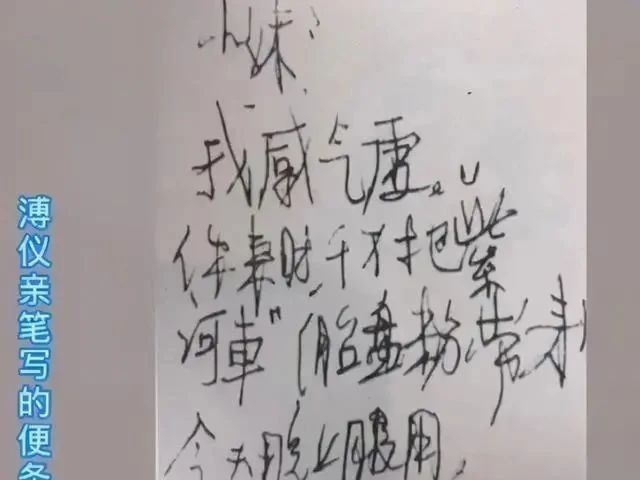 小妹:
我感气虚。
你来时,千万把"紫
河車"(胎盘粉)带来,
今天晚上服用,
溥仪亲笔写的便条